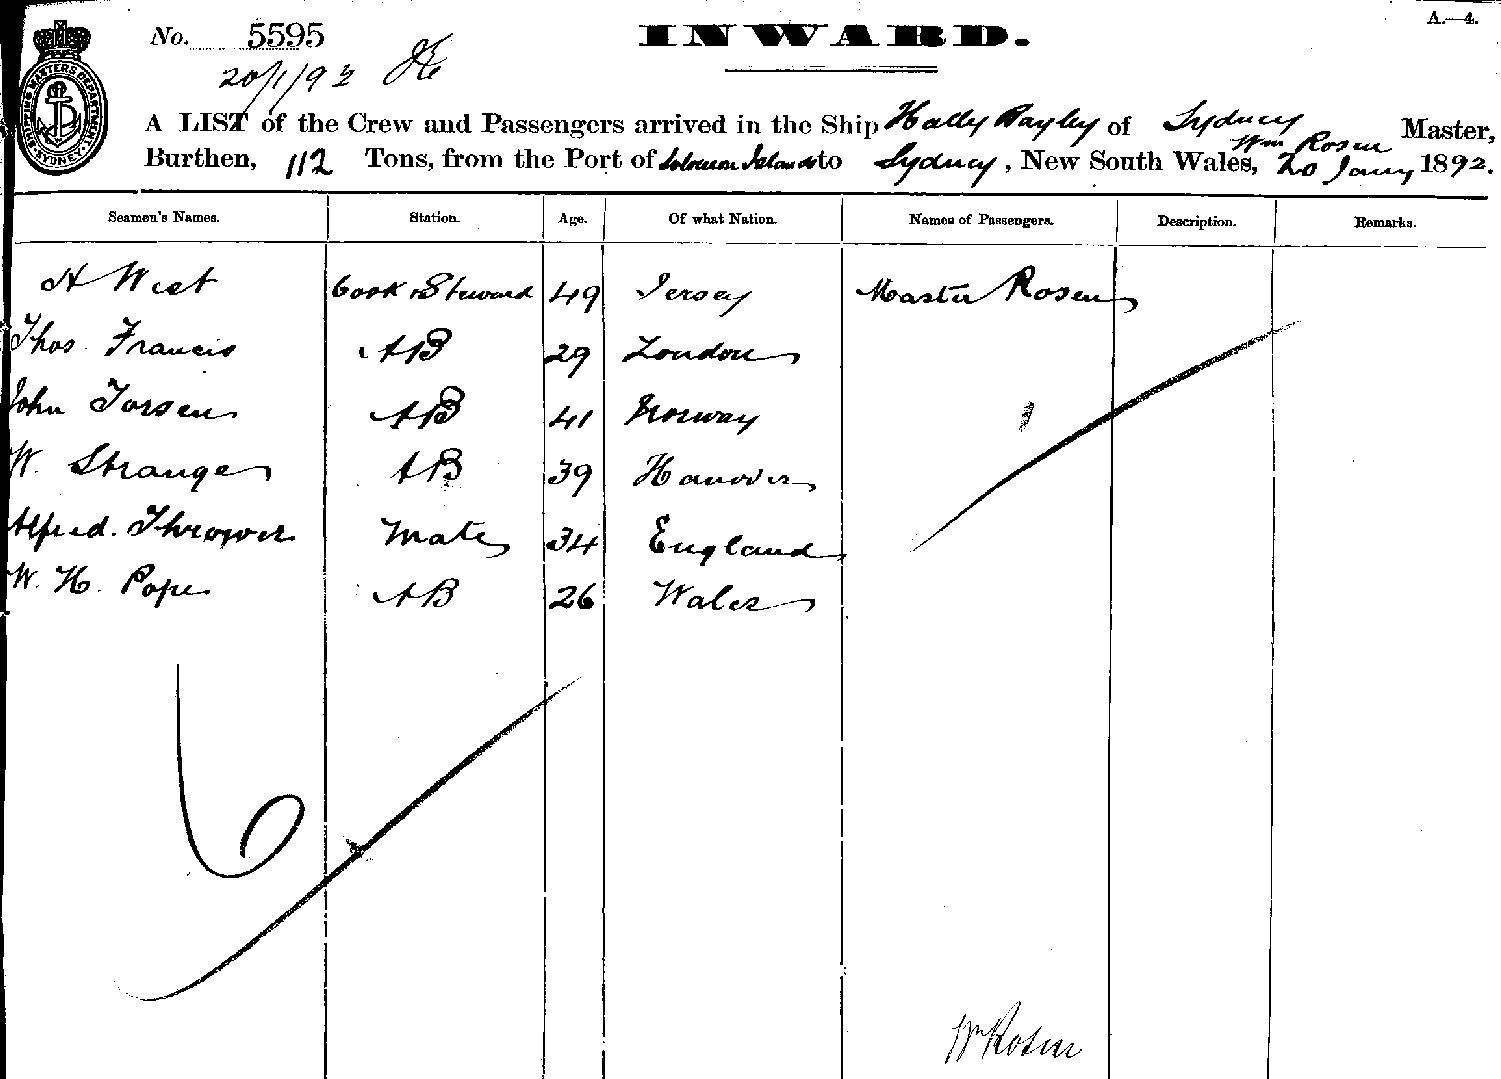 A.—4.
No. 5595
INWARD.
20/1/92
SHIPPING MASTERS DEPARTMENT SYDNEY
A LIST of the Crew and Passengers arrived in the Ship Hally Bayley of Sydney Wm Rosen Master,
Burthen, 112 Tons, from the Port of Solomon Islands to Sydney, New South Wales, 20 Jany 1892.
Seamen's Names. Station. Age. Of what Nation. Names of Passengers. Description. Remarks.
H West Cook & Steward 49 Jersey Master Rosen
Thos. Francis AB 29 London
John Torsen AB 41 Norway
W. Strange AB 39 Hanover
Alfred. Thrower Mate 34 England 1
W. H. Pope AB 26 Wales
6
Wm Rosen